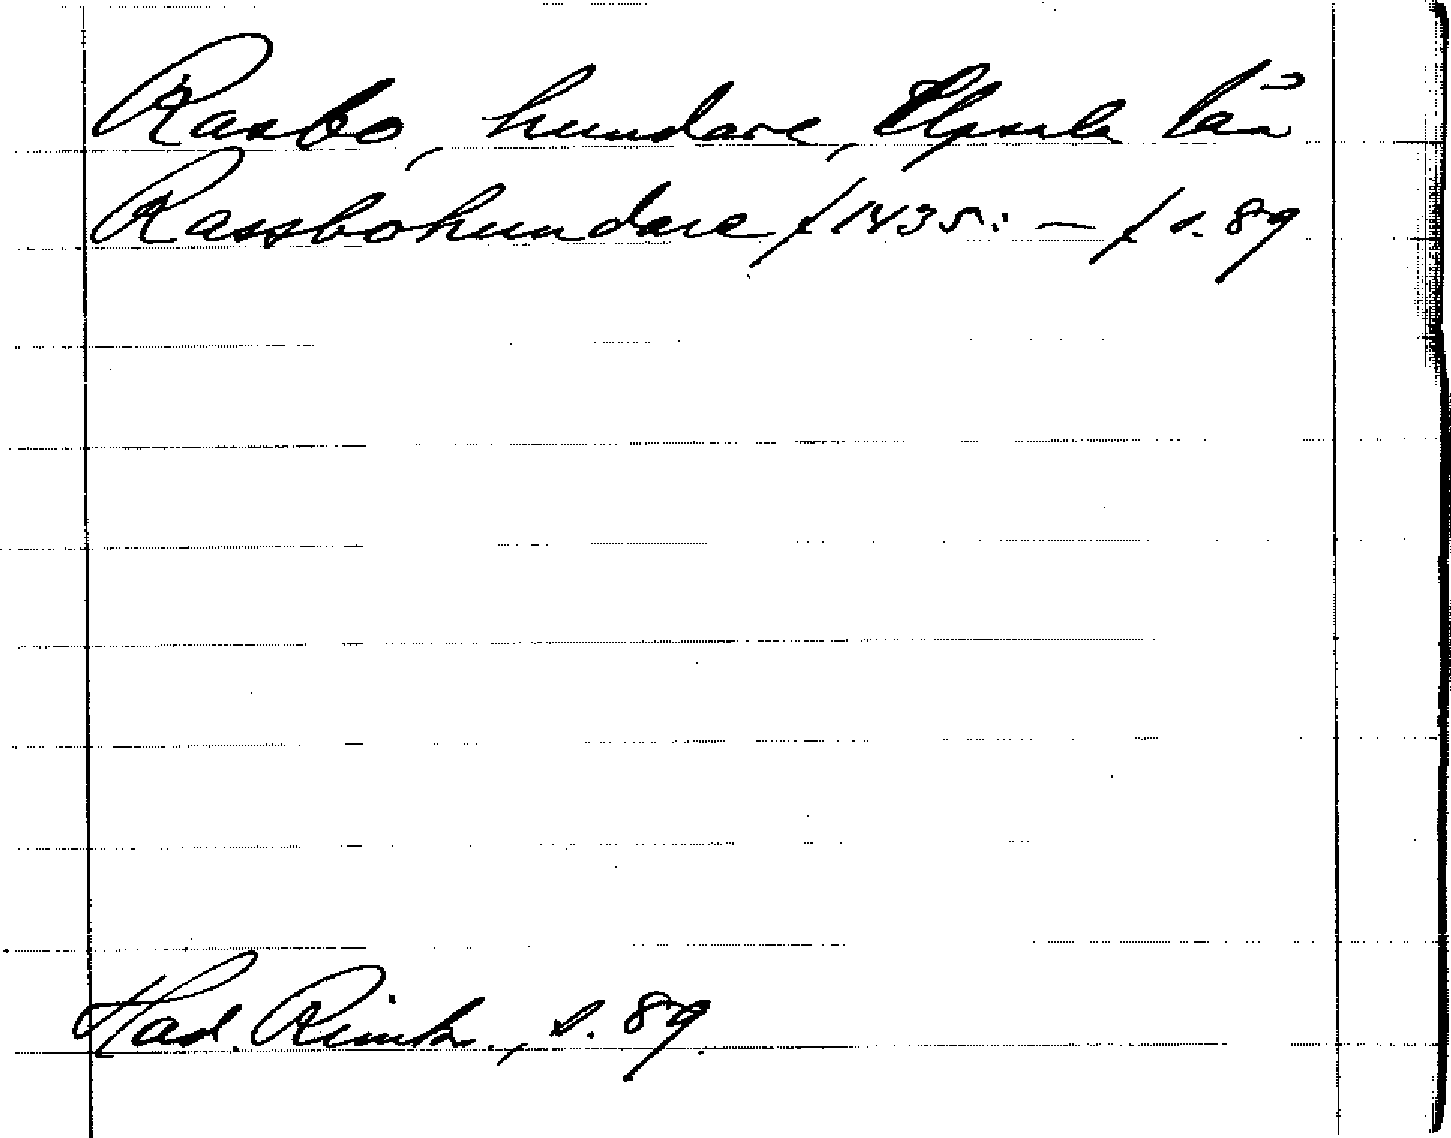 Rasbo, hundare, Upsala län
Rassbohundare /1435: — / s. 89
Had. Rimkr., s. 89